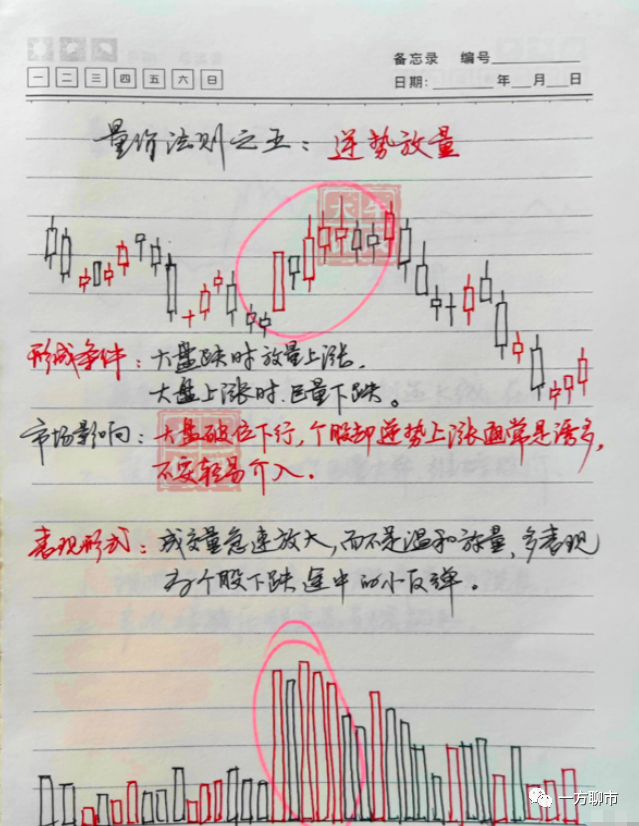 备忘录 编号
一 二 三 四 五 六 日
日期: 年 月 日
量价法则之五：逆势放量
形成条件：大盘跌时放量上涨，
大盘上涨时，巨量下跌。
市场影响：大盘破位下行，个股却逆势上涨通常是诱多，
不要轻易介入．
表现形式：成交量急速放大，而不是温和放量，多表现
为个股下跌途中的小反弹。
一方聊市